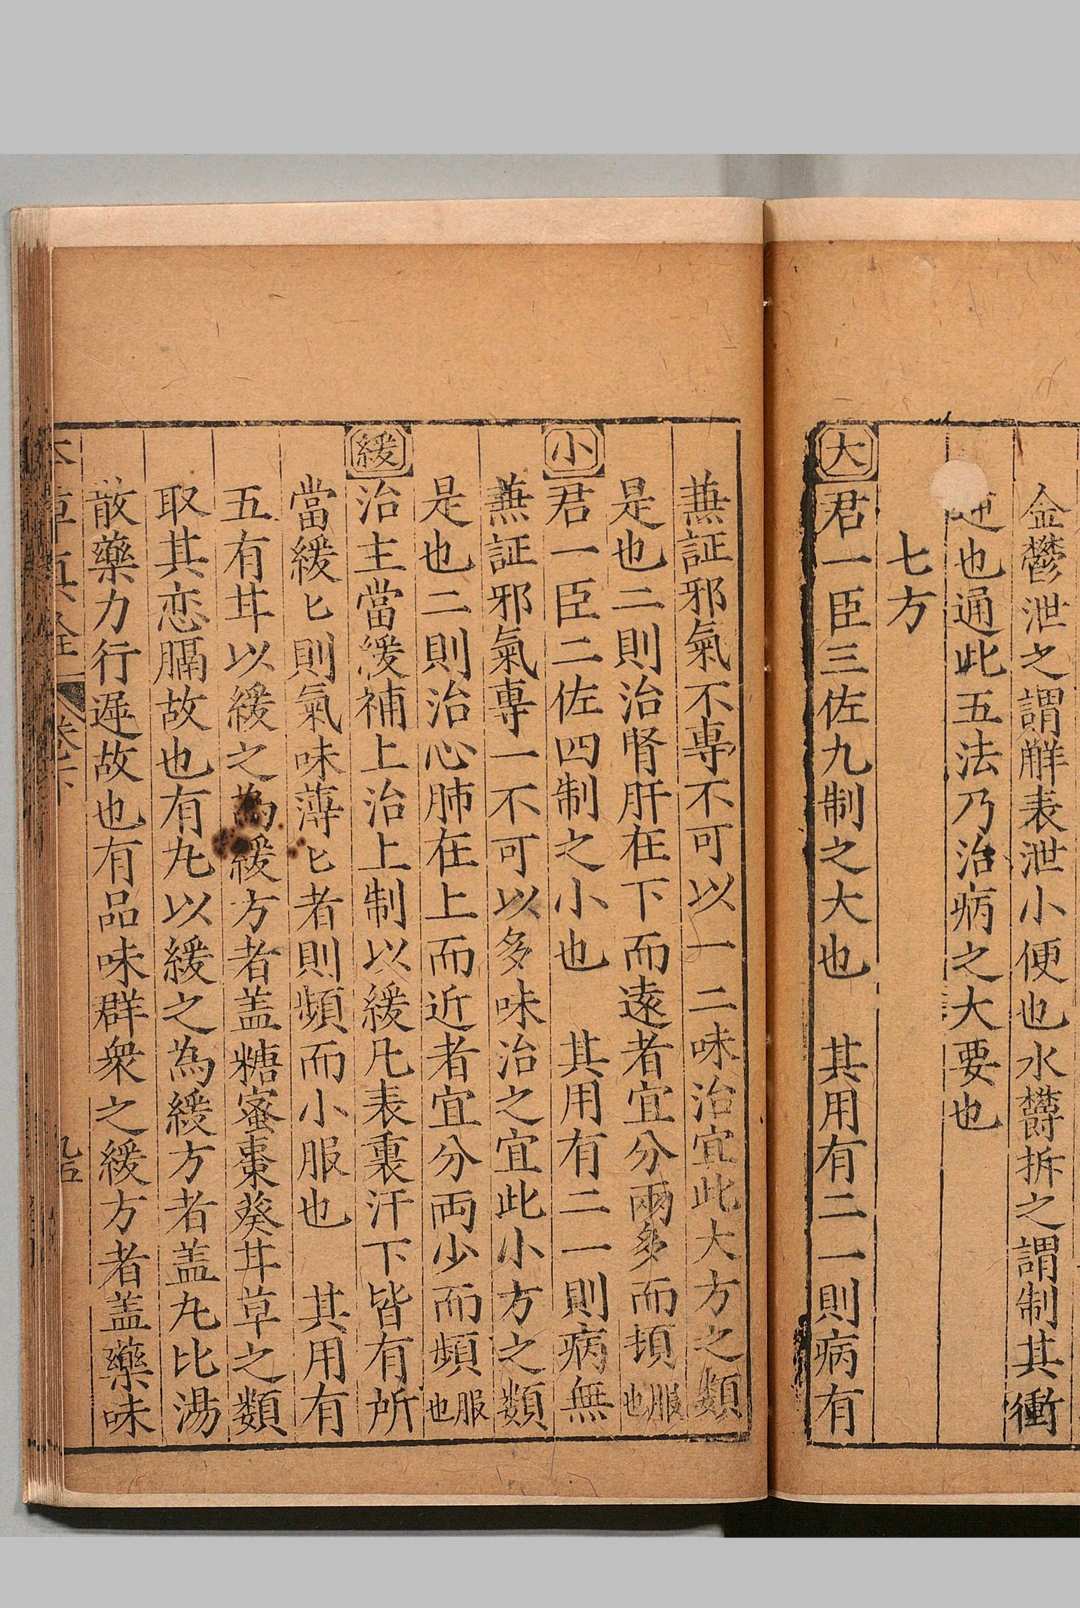 金鬱泄之謂解表泄小便也水鬱折之謂制其衝
也通此五法乃治病之大要也
七方
大 君一臣三佐九制之大也 其用有二一則病有
蕪証邪氣不專不可以一二味治宜此大方之類
是也二則治腎肝在下而遠者宜分兩多而頓服也
小 君一臣二佐四制之小也 其用有二一則病無
蕪証邪氣專一不可以多味治之宜此小方之類
是也二則治心肺在上而近者宜分両少而頻服也
緩 治主當緩補上治上制以緩凡表裏汗下皆有所
當緩匕則氣味薄匕者則頻而小服也 其用有
五有甘以緩之為緩方者盖糖蜜棗葵甘草之類
取其恋膈故也有丸以緩之為緩方者盖丸比湯
散藥力行遲故也有品味群衆之緩方者盖藥味